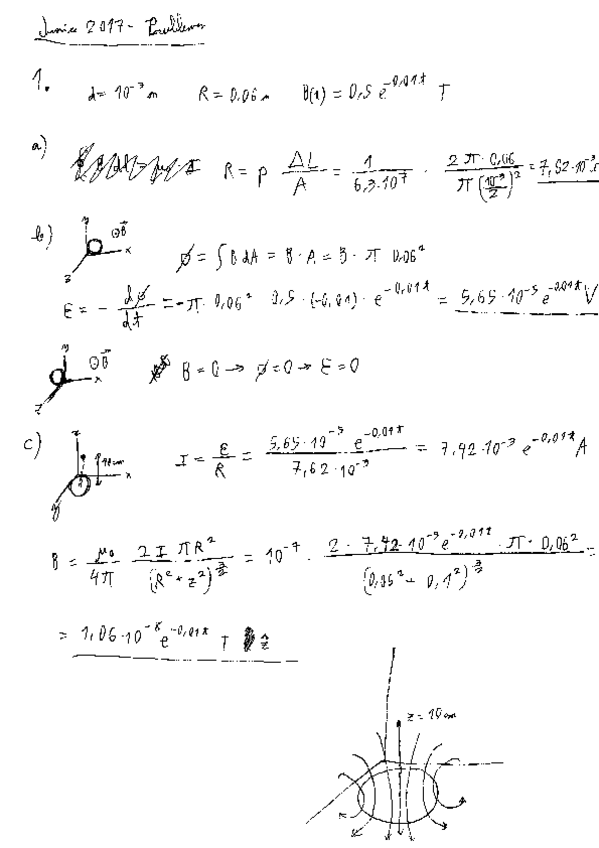 Junio 2017 - Problemas
1. d = 10^-3 m R = 0,06 m B(t) = 0,5 e^-0,01t T
a) R = ρ ΔL/A = 1/(6,3·10^7) · (2π·0,06)/(π(10^-3/2)^2) = 7,62·10^-3
b) y x z ⊙B⃗ ϕ = ∫B dA = B·A = B·π 0,06^2
ε = - dϕ/dt = -π·0,06^2 0,5·(-0,01)·e^-0,01t = 5,65·10^-5 e^-0,01t V
y x z ⊙B⃗ B = 0 → ϕ = 0 → ε = 0
c) z x y 10cm I = ε/R = (5,65·10^-5 e^-0,01t)/(7,62·10^-3) = 7,42·10^-3 e^-0,01t A
B = μ0/4π (2I πR^2)/(R^2+z^2)^3/2 = 10^-7 · (2·7,42·10^-3 e^-0,01t·π·0,06^2)/(0,06^2+0,1^2)^3/2 =
= 1,06·10^-8 e^-0,01t T ẑ
z = 10cm